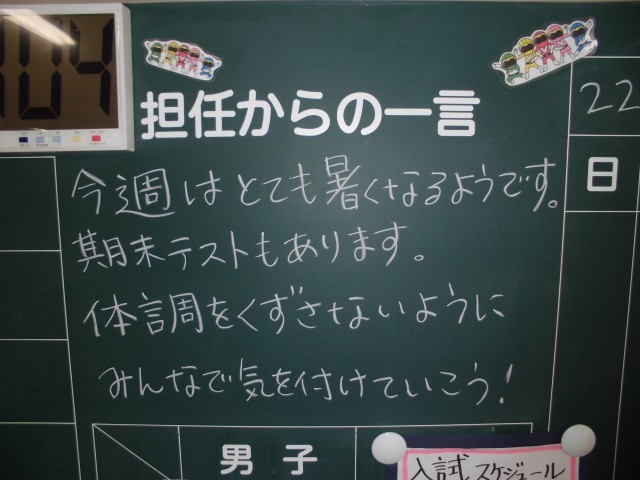 04
担任からの一言
22
日
今週はとても暑くなるようです。
期末テストもあります。
体調をくずさないように
みんなで気を付けていこう!
男子
入試スケジュール